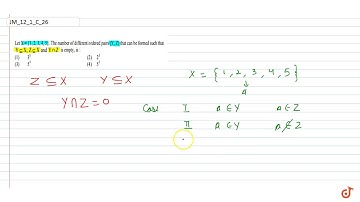 JM_12_1_C_26
Let X = {1, 2, 3, 4, 5}. The number of different ordered pairs (Y, Z) that can be formed such that
Y ⊆ X, Z ⊆ X and Y ∩ Z is empty, is :
(1) (2)
(3) (4)
Z ⊆ X Y ⊆ X
X = { 1 , 2 , 3 , 4 , 5 }
↓
a
Y ∩ Z = 0
Case I a ∈ Y a ∈ Z
II a ∈ Y a ∉ Z
doubtnut